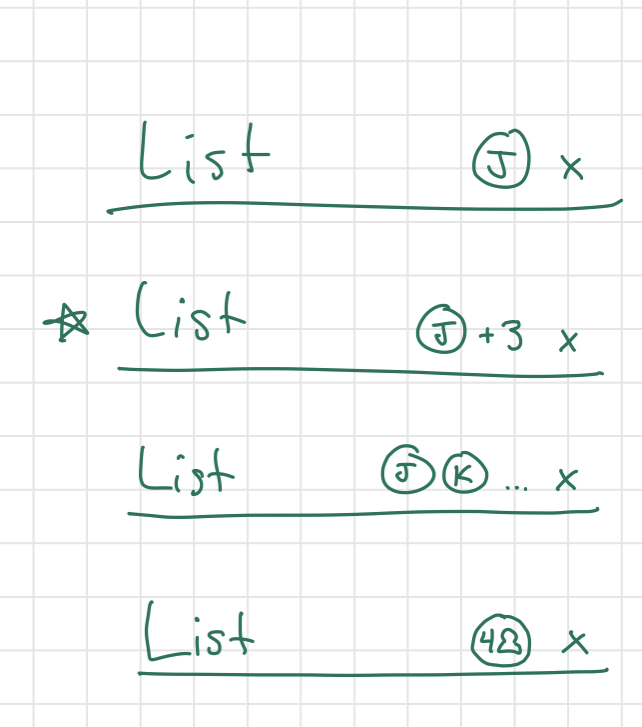 List J x
List J +3 x
List J K ... x
List 4 x